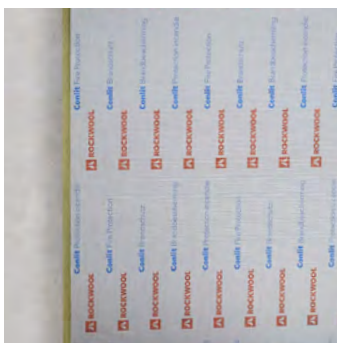 Conlit Fire Protection
ROCKWOOL
Conlit Brandschutz
ROCKWOOL
Conlit Brandbescherming
ROCKWOOL
Conlit Protection incendie
ROCKWOOL
Conlit Fire Protection
ROCKWOOL
Conlit Brandschutz
ROCKWOOL
Conlit Brandbescherming
ROCKWOOL
Conlit Protection incendie
ROCKWOOL
Conlit Fire
Conlit Protection incendie
ROCKWOOL
Conlit Fire Protection
ROCKWOOL
Conlit Brandschutz
ROCKWOOL
Conlit Brandbescherming
ROCKWOOL
Conlit Protection incendie
ROCKWOOL
Conlit Fire Protection
ROCKWOOL
Conlit Brandschutz
ROCKWOOL
Conlit Brandbescherming
ROCKWOOL
Conlit Protection incendie